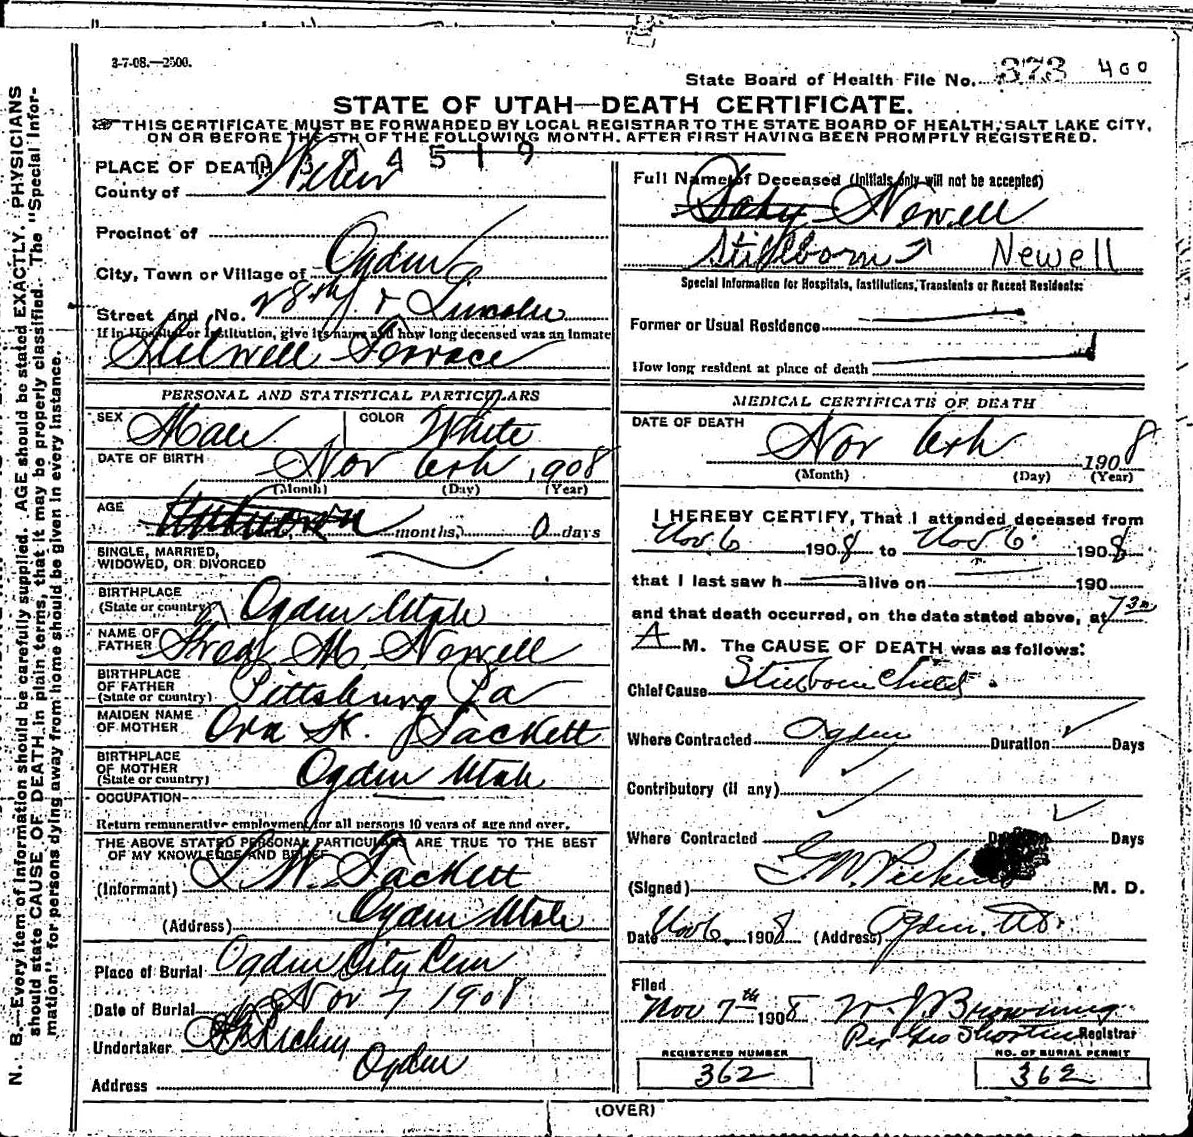 3-7-08.—2500.
State Board of Health File No. 373 400
STATE OF UTAH—DEATH CERTIFICATE.
THIS CERTIFICATE MUST BE FORWARDED BY LOCAL REGISTRAR TO THE STATE BOARD OF HEALTH, SALT LAKE CITY,
ON OR BEFORE THE 5TH OF THE FOLLOWING MONTH. AFTER FIRST HAVING BEEN PROMPTLY REGISTERED.
PLACE OF DEATH
4519
County of Weber
Precinct of
City, Town or Village of Ogden
Street and No. 28th & Lincoln
If in Hospital or Institution, give its name and how long deceased was an Inmate
Stilwell Terrace
PERSONAL AND STATISTICAL PARTICULARS
SEX Male COLOR White
DATE OF BIRTH Nov 6th, 1908
(Month) (Day) (Year)
AGE Unknown months, 0 days
SINGLE, MARRIED,
WIDOWED, OR DIVORCED
BIRTHPLACE
(State or country) Ogden Utah
NAME OF
FATHER Fred M. Newell
BIRTHPLACE
OF FATHER
(State or country) Pittsburg Pa
MAIDEN NAME
OF MOTHER Ora K. Tackett
BIRTHPLACE
OF MOTHER
(State or country) Ogden Utah
OCCUPATION
Return remunerative employment for all persons 10 years of age and over.
THE ABOVE STATED PERSONAL PARTICULARS ARE TRUE TO THE BEST
OF MY KNOWLEDGE AND BELIEF
(Informant) L. W. Tackett
(Address) Ogden Utah
Place of Burial Ogden City Cem
Date of Burial Nov 7 1908
Undertaker
Ogden
Address
Full Name of Deceased (Initials only will not be accepted)
Baby Newell
Stillborn Newell
Special Information for Hospitals, Institutions, Transients or Recent Residents:
Former or Usual Residence
How long resident at place of death
MEDICAL CERTIFICATE OF DEATH
DATE OF DEATH
Nov 6th 1908
(Month) (Day) (Year)
I HEREBY CERTIFY, That I attended deceased from
Nov. 6 1908 to Nov 6. 1908
that I last saw h alive on 190
and that death occurred, on the date stated above, at 730
A M. The CAUSE OF DEATH was as follows:
Chief Cause Stillborn Child.
Where Contracted Ogden Duration Days
Contributory (if any)
Where Contracted Days
(Signed) M. D.
Date Nov 6. 1908 (Address) Ogden. Ut.
Filed
Nov 7th 1908 W J Browning
Registrar
REGISTERED NUMBER
362
NO. OF BURIAL PERMIT
362
(OVER)
N. B.—Every item of information should be carefully supplied. AGE should be stated EXACTLY. PHYSICIANS
should state CAUSE OF DEATH in plain terms, that it may be properly classified. The "Special Infor-
mation" for persons dying away from home should be given in every instance.